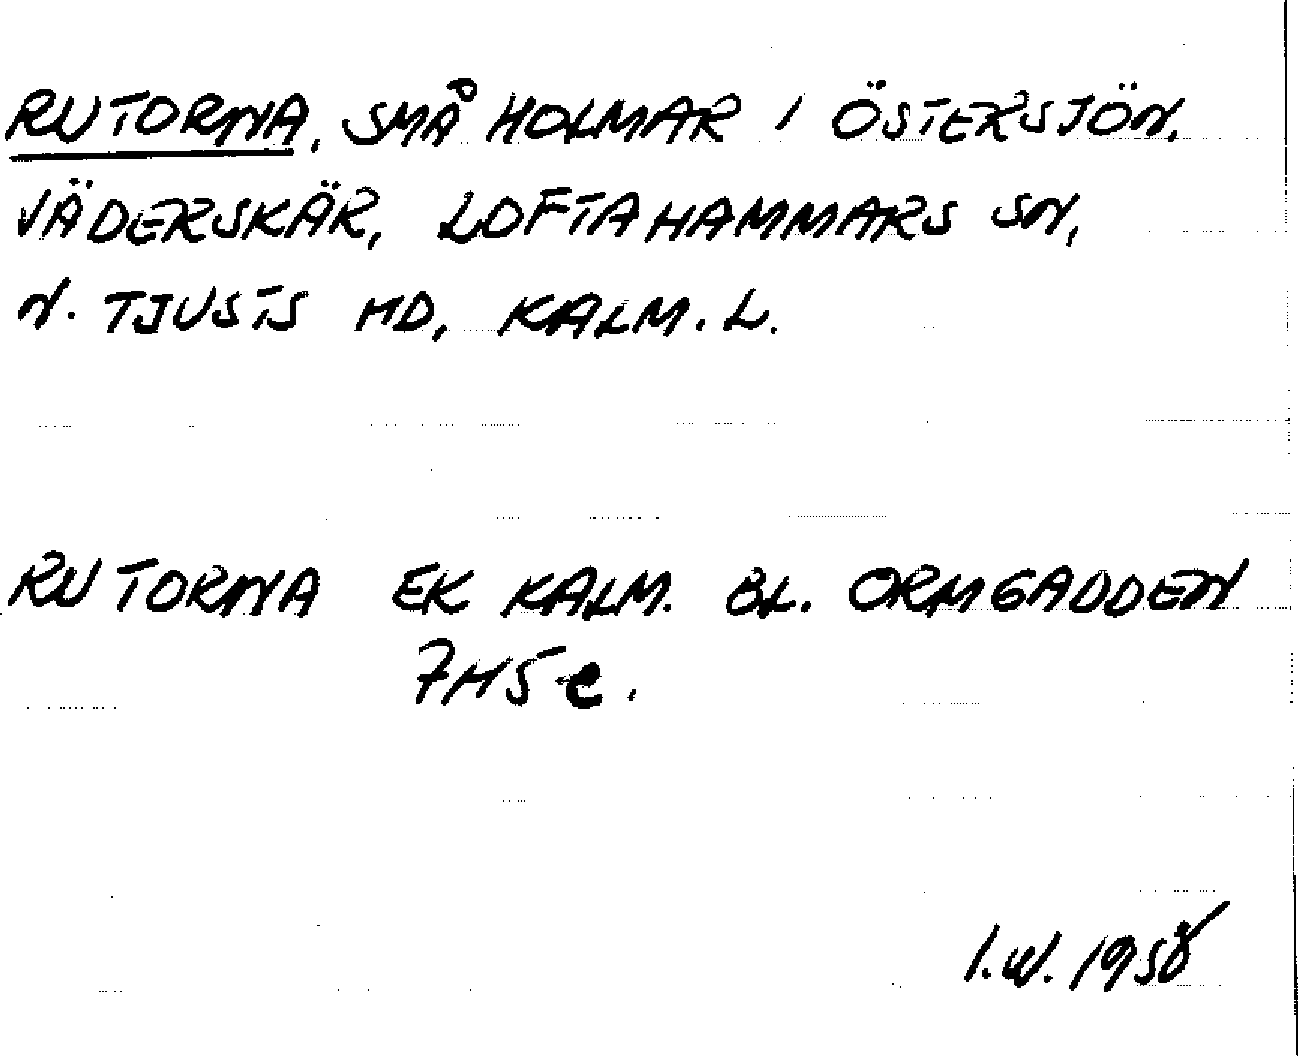 RUTORNA, SMÅ HOLMAR I ÖSTERSJÖN,
VÄDERSKÄR, LOFTAHAMMARS SN,
N. TJUSTS HD, KALM. L.
RUTORNA EK KALM. BL. ORMGADDEN
7H5e.
I.W. 1958